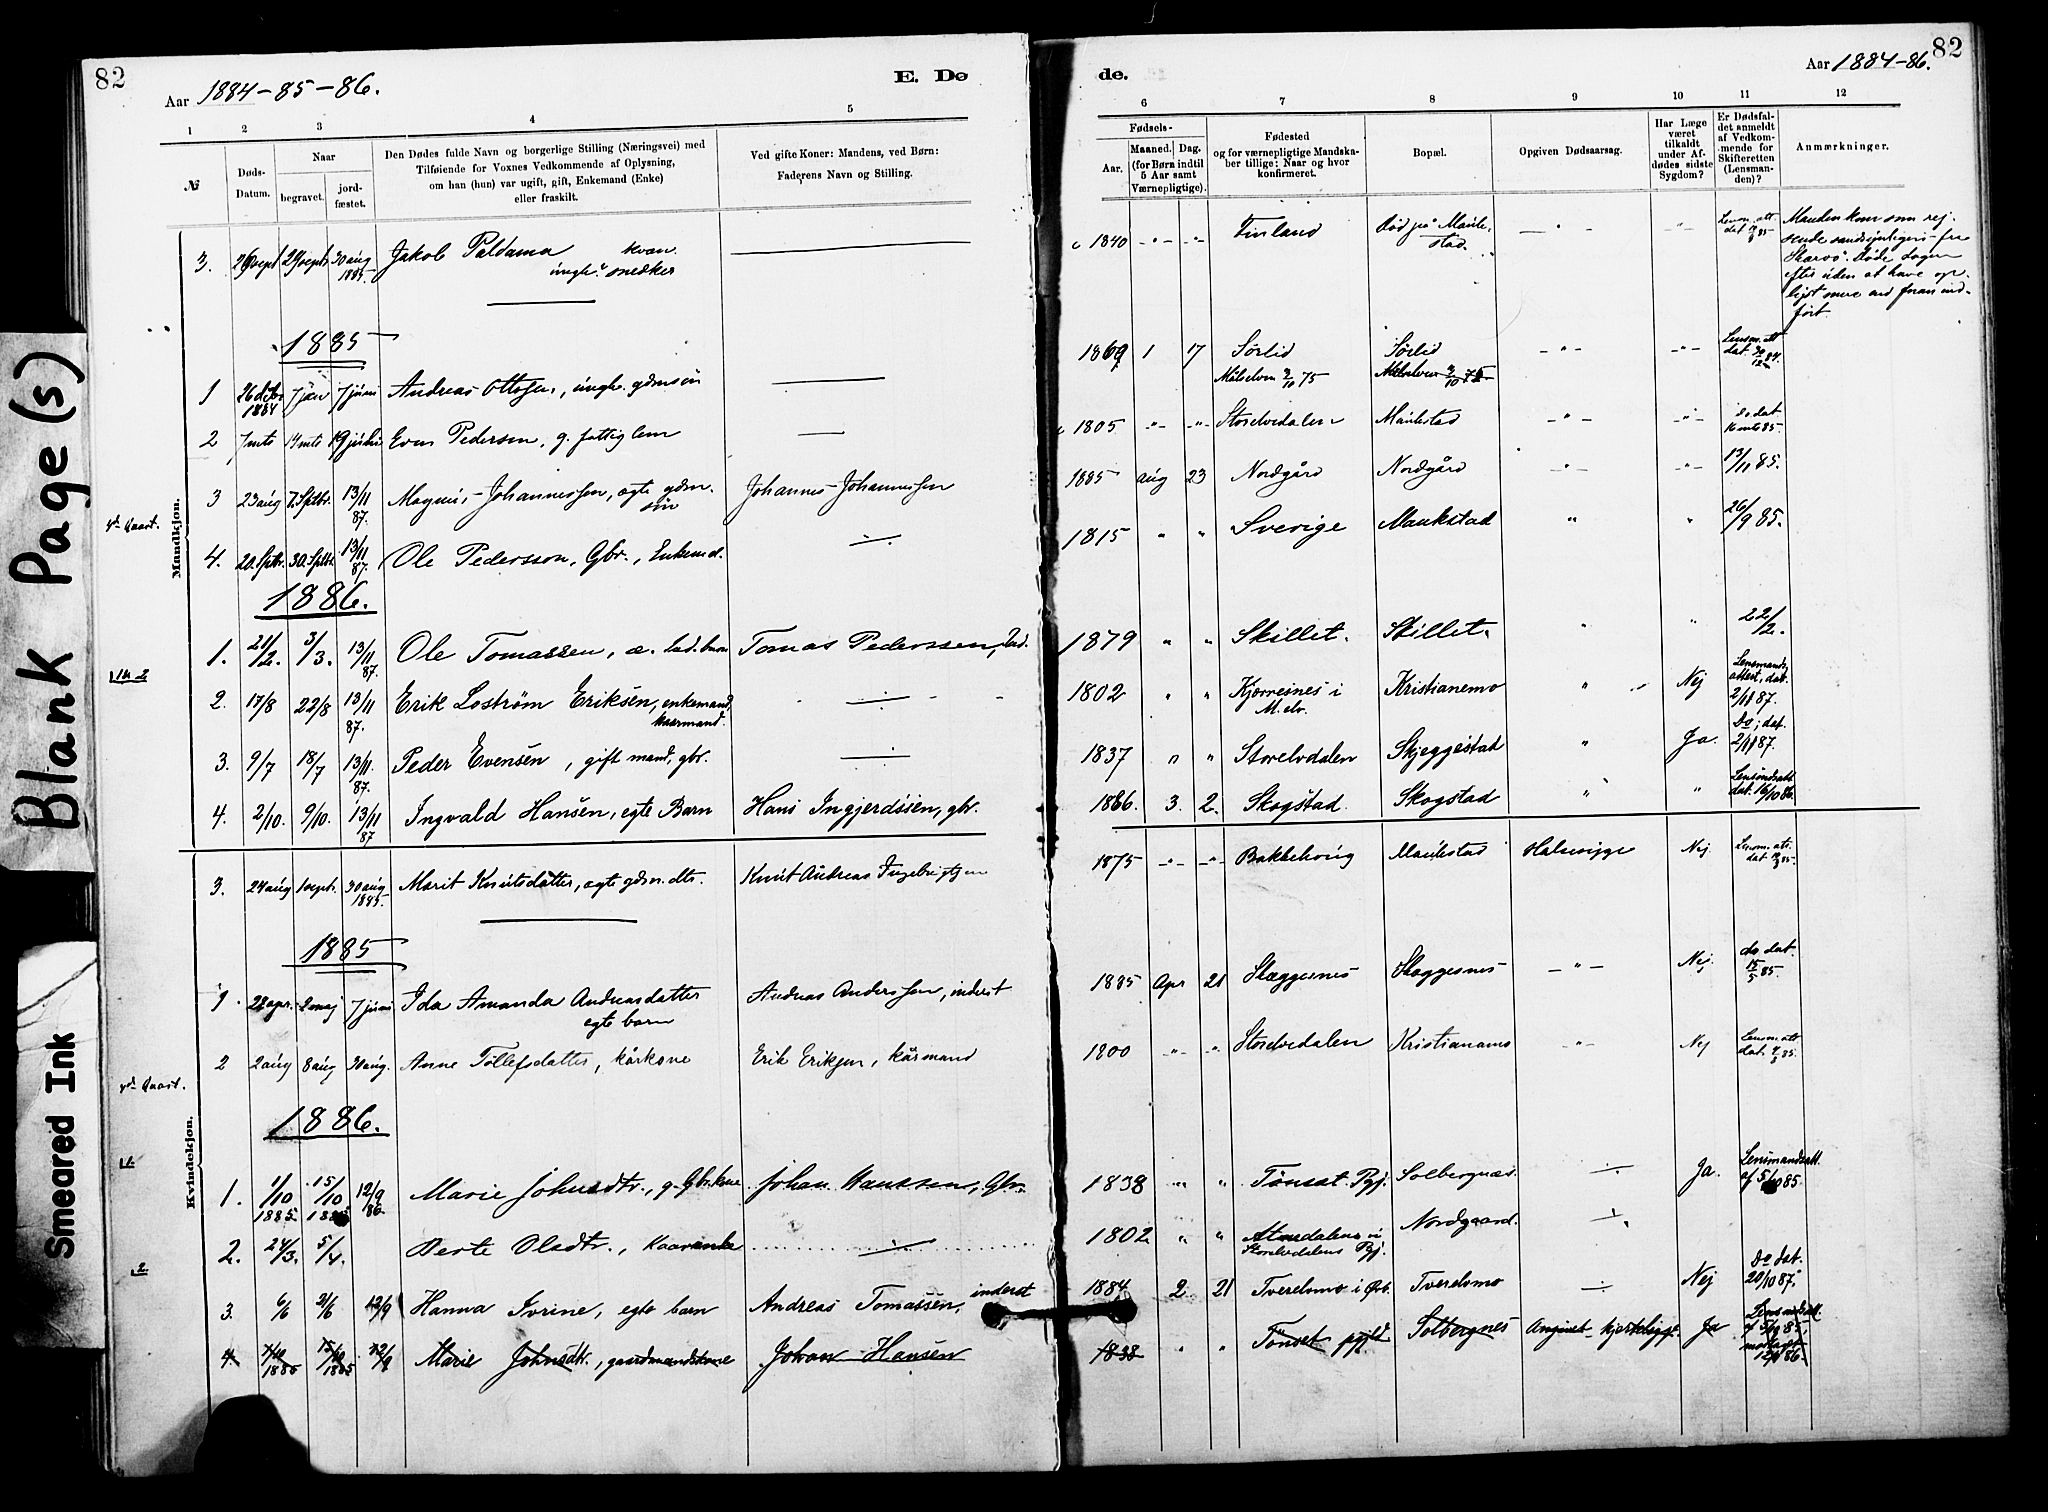 Blank Page(s)
Smeared Ink
82
Aar 1884-85-86.
E. Dø
de.
Aar 1884-86.
82
1 2 3 4 5
6 7 8 9 10 11 12
№
Døds-
Datum.
Naar
begravet.
jord-
fæstet.
Den Dødes fulde Navn og borgerlige Stilling (Næringsvei) med
Tilføiende for Voxnes Vedkommende af Oplysning,
om han (hun) var ugift, gift, Enkemand (Enke)
eller fraskilt.
Ved gifte Koner: Mandens, ved Børn:
Faderens Navn og Stilling.
Fødsels-
Aar.
Maaned. Dag.
(for Børn indtil
5 Aar samt
Værnepligtige).
Fødested
og for værnepligtige Mandska-
ber tillige: Naar og hvor
konfirmeret.
Bopæl.
Opgiven Dødsaarsag.
Har Læge
været
tilkaldt
under Af-
dødes sidste
Sygdom?
Er Dødsfal-
det anmeldt
af Vedkom-
mende for
Skifteretten
(Lensman-
den)?
Anmærkninger.
Mandkjøn.
3. 26 sept 29 sept 30 aug 1885. Jakob Paldama kvæn
ungk. snedker
c 1840 -"- -"- Finland Død på Maukestad. -"- -"- Lensm. att. dat.
Manden kom som rej-
sende sandsynligvis fra
Skærvø. Døde dagen
efter uden at have op-
lyst mere end foran ind-
ført.
1885
1 26 dcbr 1884 7 jan 7 juni Andreas Ottesen, ungk. gdmsøn
1869 1 17 Sørlid Målselven 2/10 75 Sørlid -"- -"- Lensm. att dat. 30/12 84.
2 7 mts 14 mts 19 juli Even Pedersen, g. fattiglem
c 1805 -"- -"- Storelvedalen Maukestad -"- -"- do dat 16 mts 85.
4de Qvart.
3 23 aug 7. Sptbr. 13/11 87. Magnus Johannessen, ægte gdm. søn Johannes Johannessen
1885 aug 23 Nordgård Nordgård -"- -"- 13/11 85.
4. 20. Sptbr. 30. Sptbr. 13/11 87. Ole Pedersson, Gbr., Enkemd.
1815 " " Sverige Maukstad " " 26/9 85.
1886.
1. 21/2. 3/3. 13/11 87. Ole Tomassen, æ. Ind. barn Tomas Pederssen, Ind.
1879 " " Skillet. Skillet. " " 22/2.
2. 17/8 22/8 13/11 87. Erik Lostrøm Eriksen, enkemand, kaarmand.
1802 " " Kjørresnes i M.elv. Kristianemo " Nej Lensmands attest, dat. 2/11 87.
3. 9/7 18/7 13/11. 87. Peder Evensen, gift mand, gbr.
1837 " " Storelvdalen Skjeggestad " Ja. Do; dat. 2/11 87.
4. 2/10. 9/10. 13/11 87 Ingvald Hansen, egte Barn Hans Ingjerdssen, gbr.
1886. 3. 2. Skogstad. Skogstad " " Lensmdsatt dat. 16/10 86.
Kvindekjøn.
3. 24 aug 1 sept. 30 aug 1885. Marit Knutsdatter, ægte gdm. dtr. Knut Andreas Ingebrigtsen
1875 -"- -"- Bakkehoug Maukestad Halssyge Nej Lensm. att. dat.
1885
1 28 apr. 2 maj 7 juni Ida Amanda Andreasdatter
egte barn Andreas Anderssen, inderst
1885 Apr 21 Skæggesnes Skæggesnes -"- Nej. do dat. 15/5 85.
2 2 aug 8 aug 30 aug. Anne Tollefsdatter, kårkone Erik Eriksen, kårmand
1800 -"- -"- Storelvedalen Kristianamo -"- Nej Lensm. att dat.
4de Quart.
1886.
1. 1/10 1885 15/10 1885 12/9 86. Marie Johnsdtr., g. Gbr.kone Johan Hanssen, Gbr.
1838 -"- " Tönset Pgj. Solbergnæs. Ja. Lensmandsatt. af 5/10 85.
2. 24/3. 5/4. Berte Olsdtr., Kaarenke
1802 " " Atnedalen i Storelvdalens Pgj. Nordgaard.
3. 6/6 21/6 12/9 Hanna Ivrine, egte barn Andreas Tomassen, inderst
1884 2 21 Tverelvmo i Øvb. Tverelvmo Nej Do dat. 20/10 87.
4. 1/10 1885 15/10 1885 12/9 Marie Johnsdtr., gaardmandskone Johan Hansen
1838 " " Tönset pgjld Solbergnes Ja Lensmdsatt. af 5/10 85,